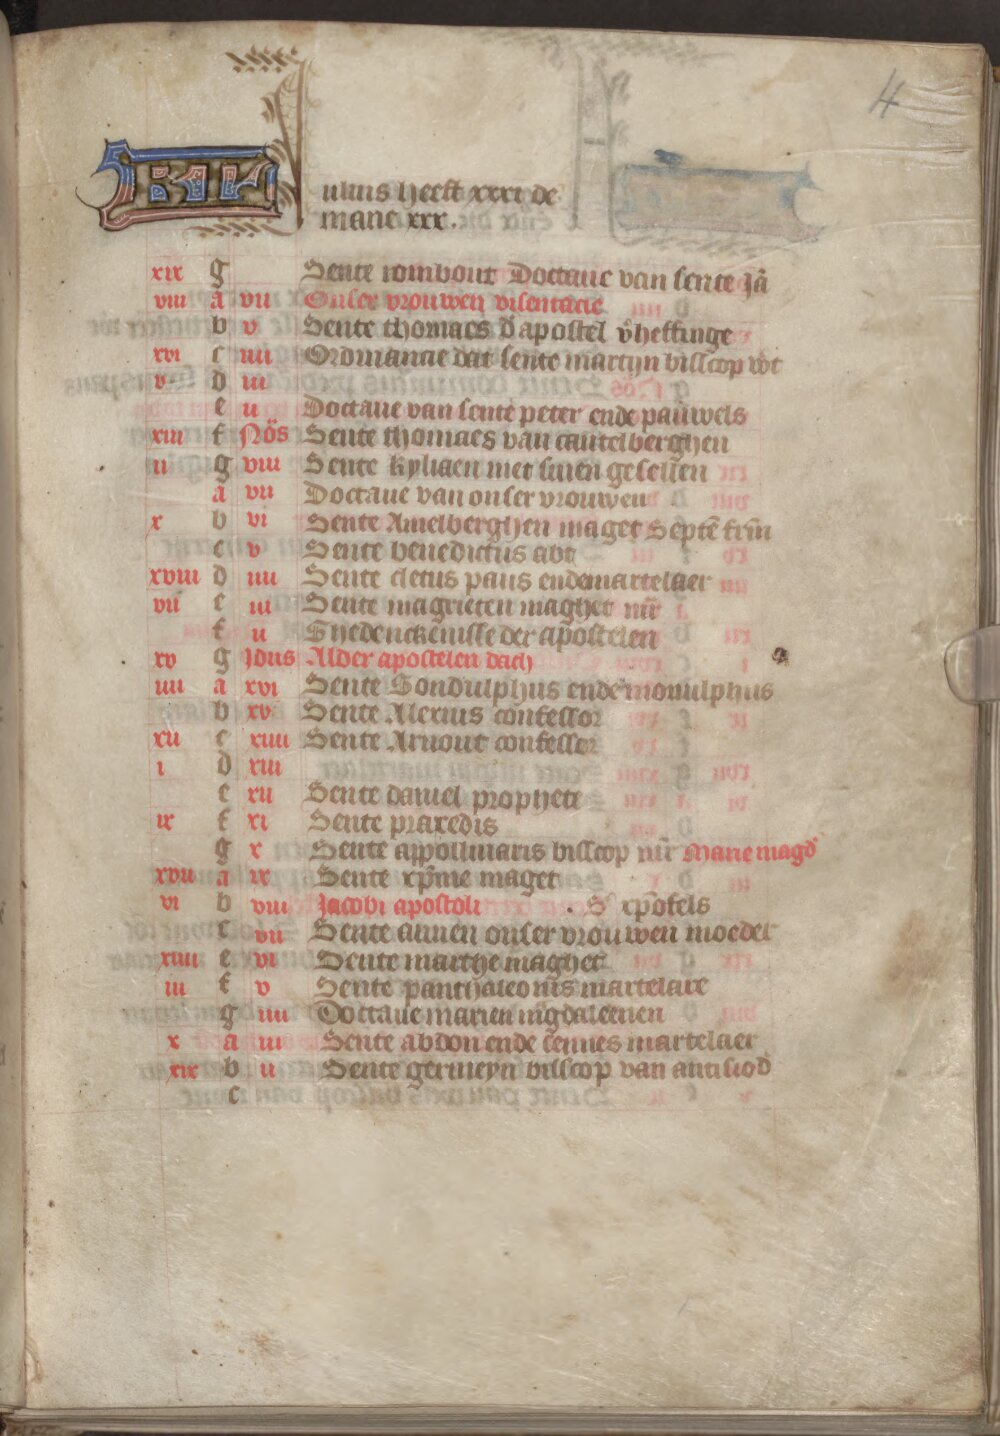 4
KL Iulius heeft xxxi de
mane xxx.
xix g Sente rombout Doctaue van sente Jā
viii a vii Onser vrouwen visentacie
b v Sente thomaes d̄ apostel v̄heffinge
xvi c iiii Ordinancie dat sente martijn bisscop wt
v d iii
e ii Doctaue van sente peter ende pauwels
xiii f Nōs Sente thomaes van cantelberghen
ii g viii Sente kyliaen met sinen gesellen
a vii Doctaue van onser vrouwen
x b vi Sente Amelberghen maget Septē frm̄
c v Sente benedictus abt
xviii d iiii Sente cletus paus ende martelaer
vii e iii Sente magrieten maghet mr̄
f ii Ghedenckenisse der apostelen
xv g Idus Alder apostelen dach
iiii a xvi Sente Gondulphus ende monulphus
b xv Sente Alexius confessor
xii c xiiii Sente Arnout confessor
i d xiii
e xii Sente daniel prophete
ix f xi Sente praxedis
g x Sente appollinaris bisscop mr̄ Marie magd̄
xvii a ix Sente xp̄ine maget
vi b viii Jacobi apostoli . S xp̄ofels
c vii Sente annen onser vrouwen moeder
xiiii e vi Sente marthe maghet
iii f v Sente panthaleonis martelare
g iiii Doctaue marien mḡdaleenen
x a iii Sente abdon ende sennes martelaer
xix b ii Sente germeyn bisscop van antisiod
c